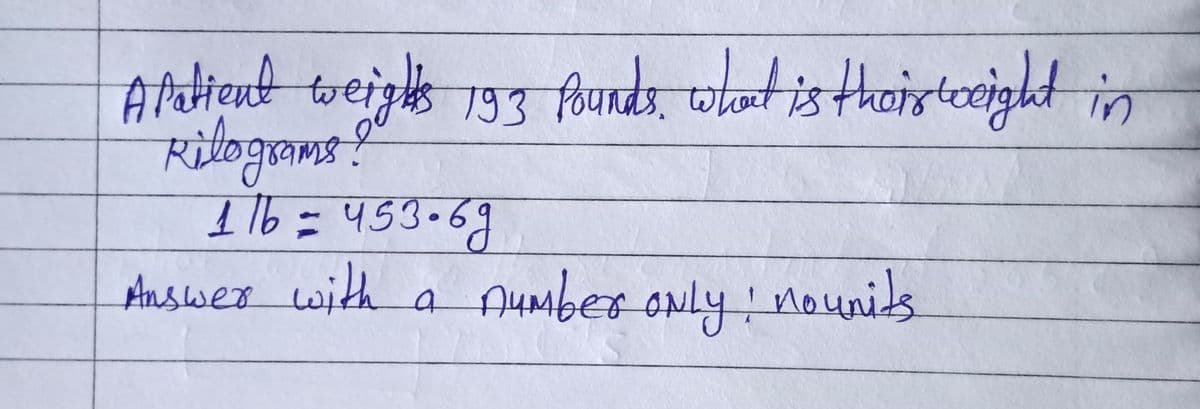 A Patient weights 193 Pounds. what is their weight in
Kilograms?
1 lb = 453.6g
Answer with a number only; no units